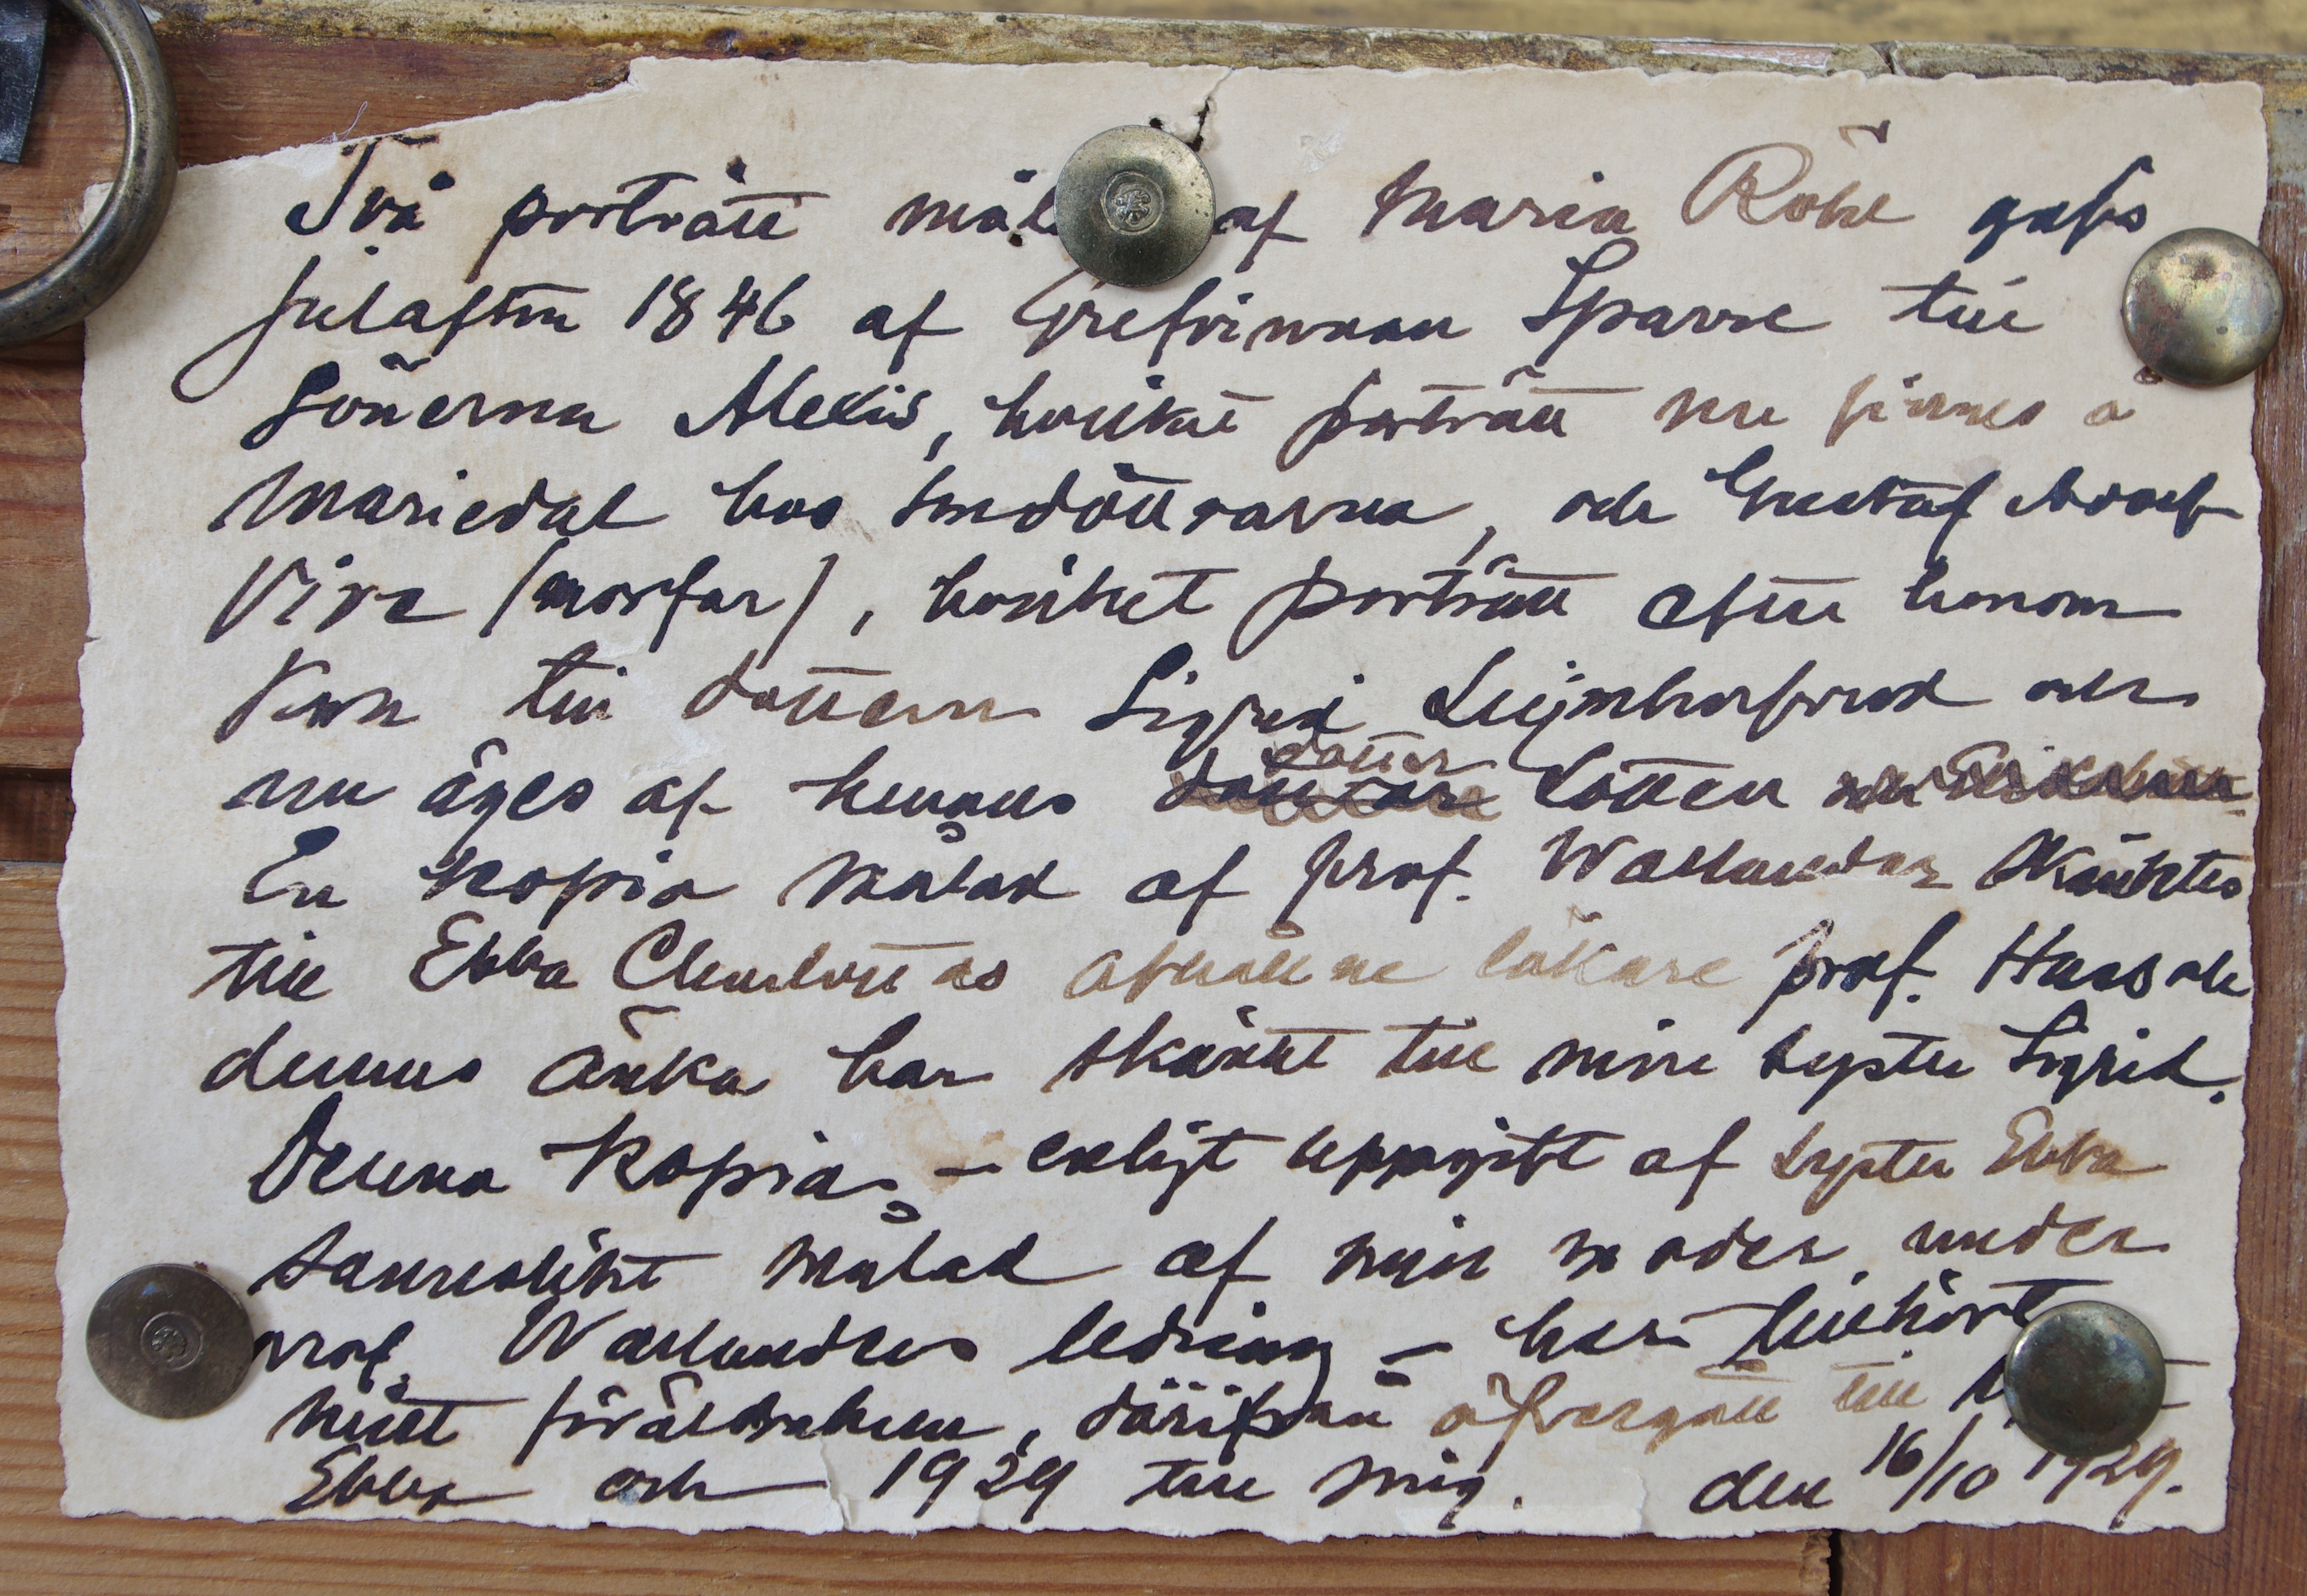 Två porträtt mål af Maria Röhl gafs
julafton 1846 af Grefvinnan Sparre till
Sönerna Alexis, hvilket porträtt nu finnes å
Mariedal hos sondöttrarna, och Gustaf Adolf
Vive (morfar), hvilket porträtt efter honom
kom till dottern Sigrid Leijonhufvud och
nu äges af hennes dotter Lotten
En kopia målad af prof. Wallander skänktes
till Ebba Charlottas afhållne läkare prof. Huss och
dennes änka har skänkt till min syster Sigrid.
Denna kopia, – enligt uppgift af syster Ebba
sannolikt målad af min moder under
prof. Wallanders ledning – har tillhört
mitt föräldrahem, därifrån öfvergått till
Ebba och 1929 till mig. den 16/10 1929.